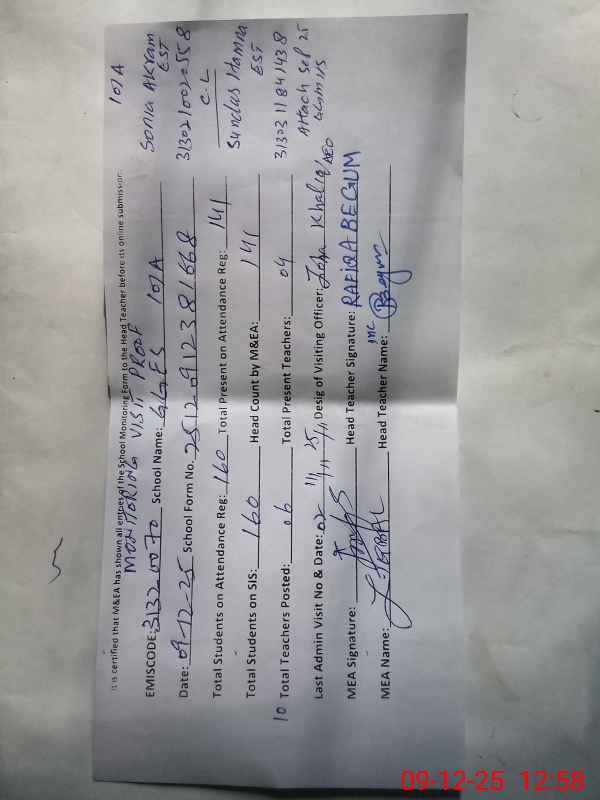 It is certified that M&EA has shown all entries of the School Monitoring Form to the Head Teacher before its online submission.
MONITORING VISIT PROOF
EMISCODE: 31320070 School Name: GGES 101A
Date: 09-12-25 School Form No. 2512091238 1668
Total Students on Attendance Reg: 160 Total Present on Attendance Reg: 141
Total Students on SIS: 160 Head Count by M&EA: 141
10 Total Teachers Posted: 06 Total Present Teachers: 04
Last Admin Visit No & Date: 02 11/11/25 Desig of Visiting Officer: Khalid/AEO
MEA Signature: Head Teacher Signature: RAFIQA BEGUM
MEA Name: Head Teacher Name: Begum
101A
Sonia AKram
EST
C.L
EST
31303 1184143 8
Attach Sep 25
09-12-25 12:58